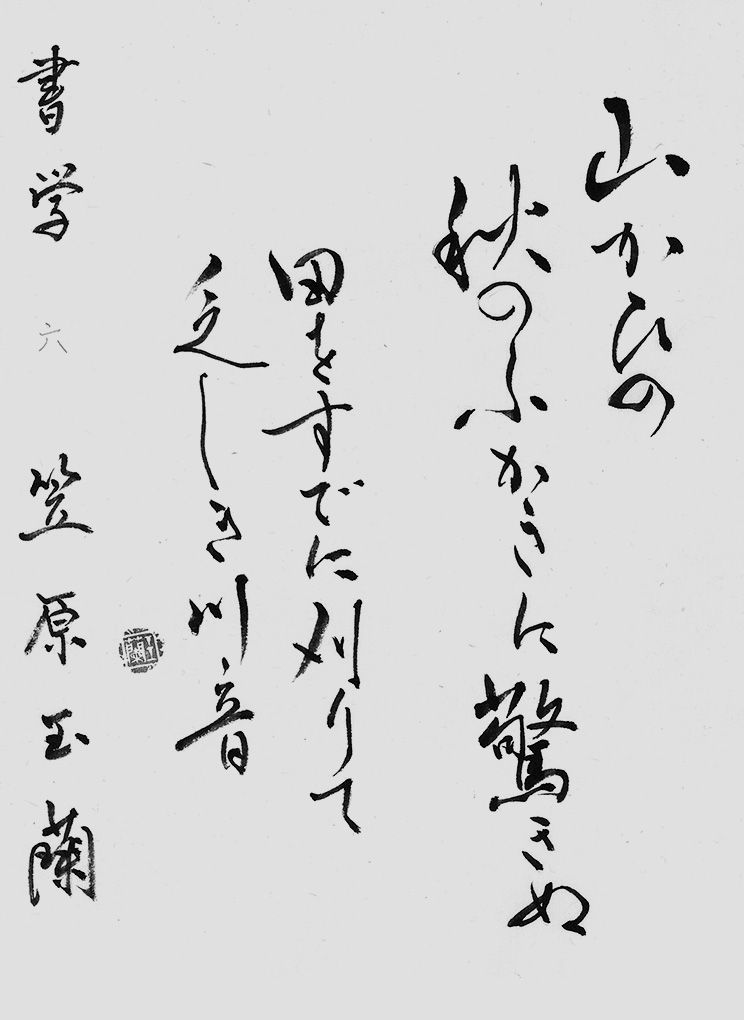 山かひの
秋のふかきに驚きぬ
田をすでに刈りて
乏しき川音
書学 六 笠原玉蘭
玉蘭